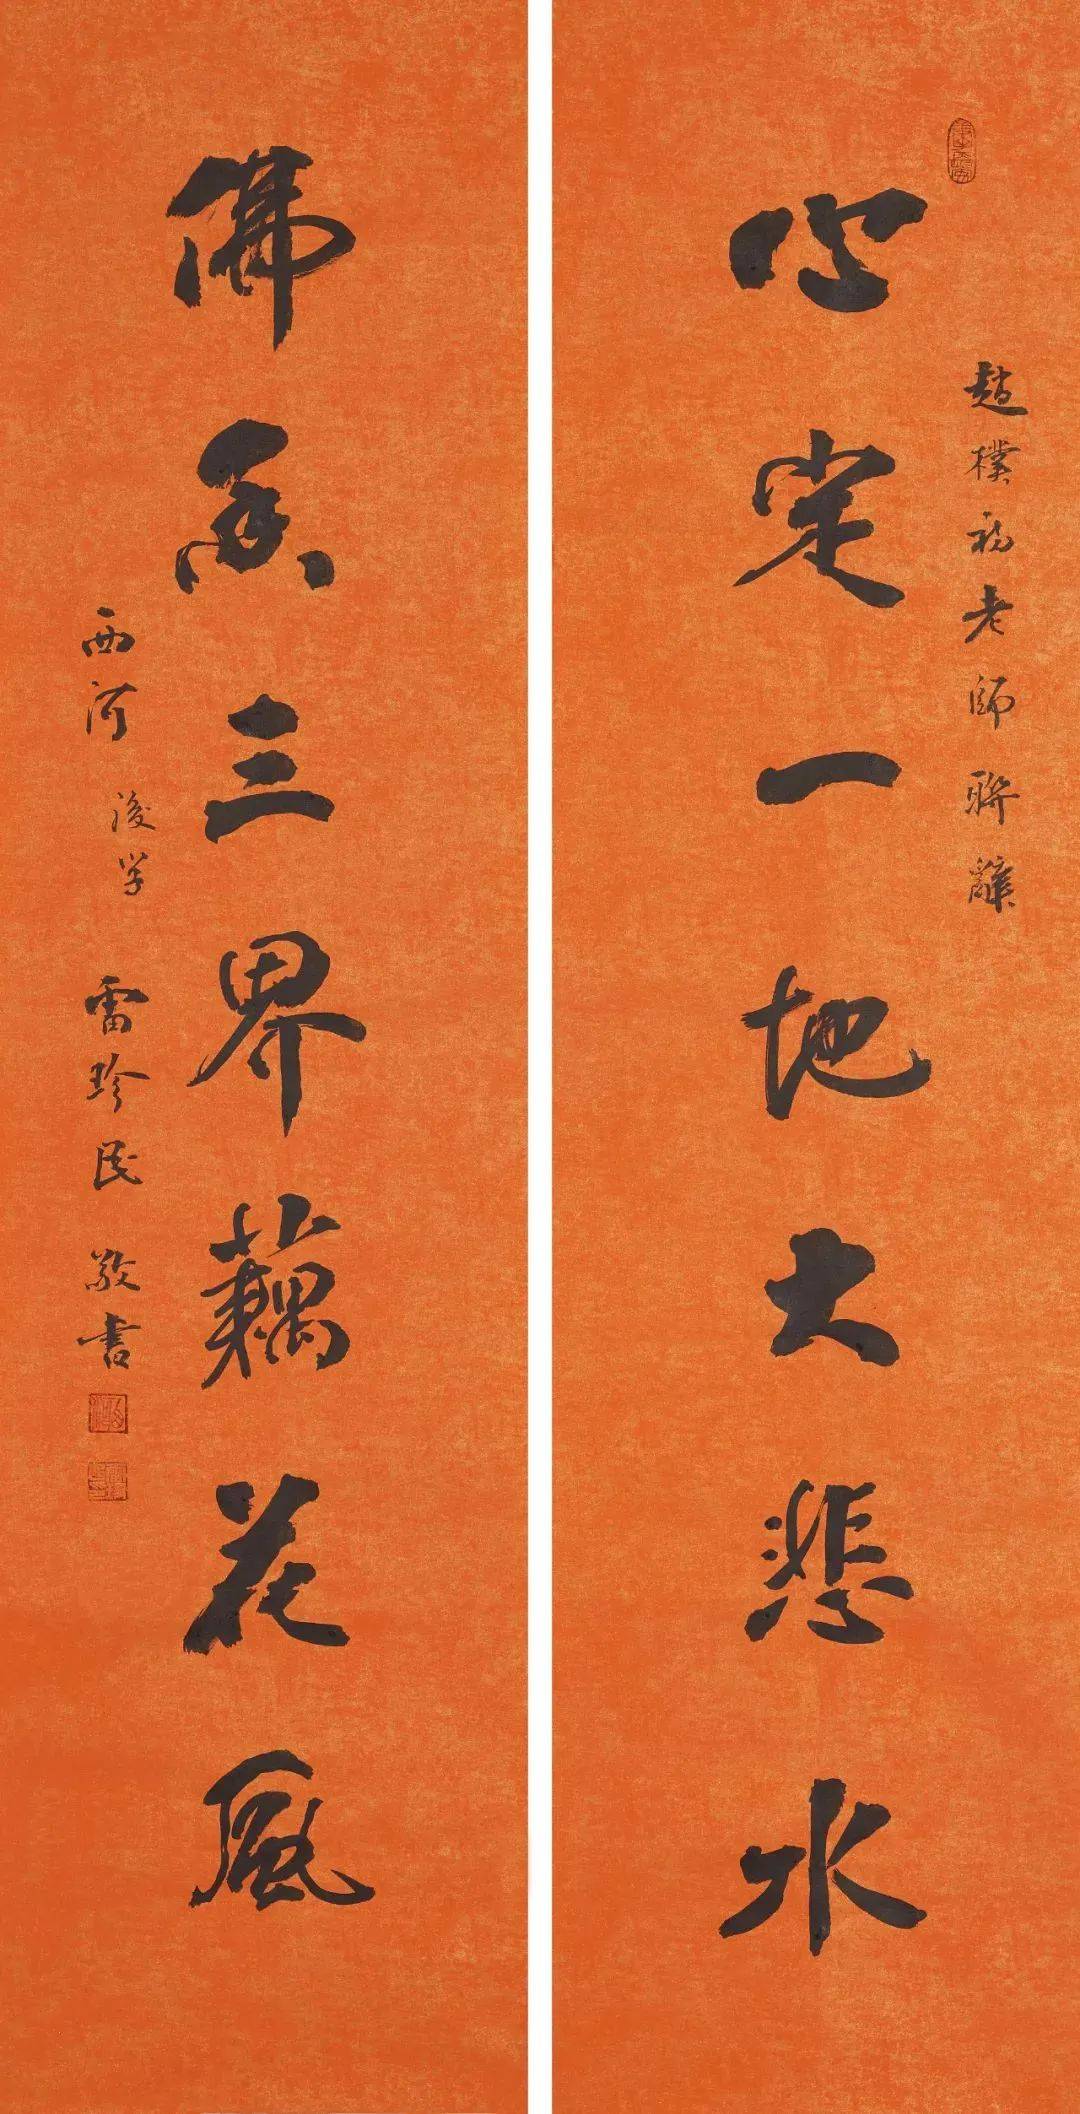 趙樸初老師聯辭
心定一地大悲水
佛香三界藕花風
西河後学雷珍民敬书